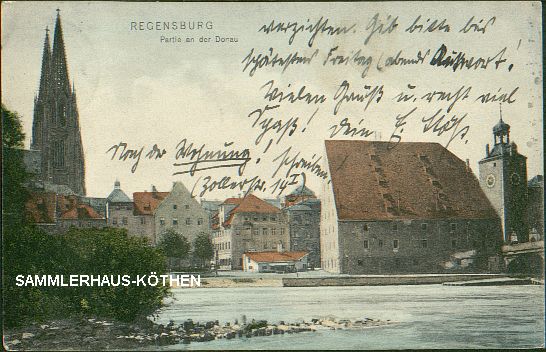 REGENSBURG
Partie an der Donau
verzichten. Gib bitte bis
spätestens Freitag (abends Antwort!
Vielen Gruß u. recht viel
Spaß! Dein
Nach der Wohnung! schreiben
(Zollerstr. 14
SAMMLERHAUS-KÖTHEN